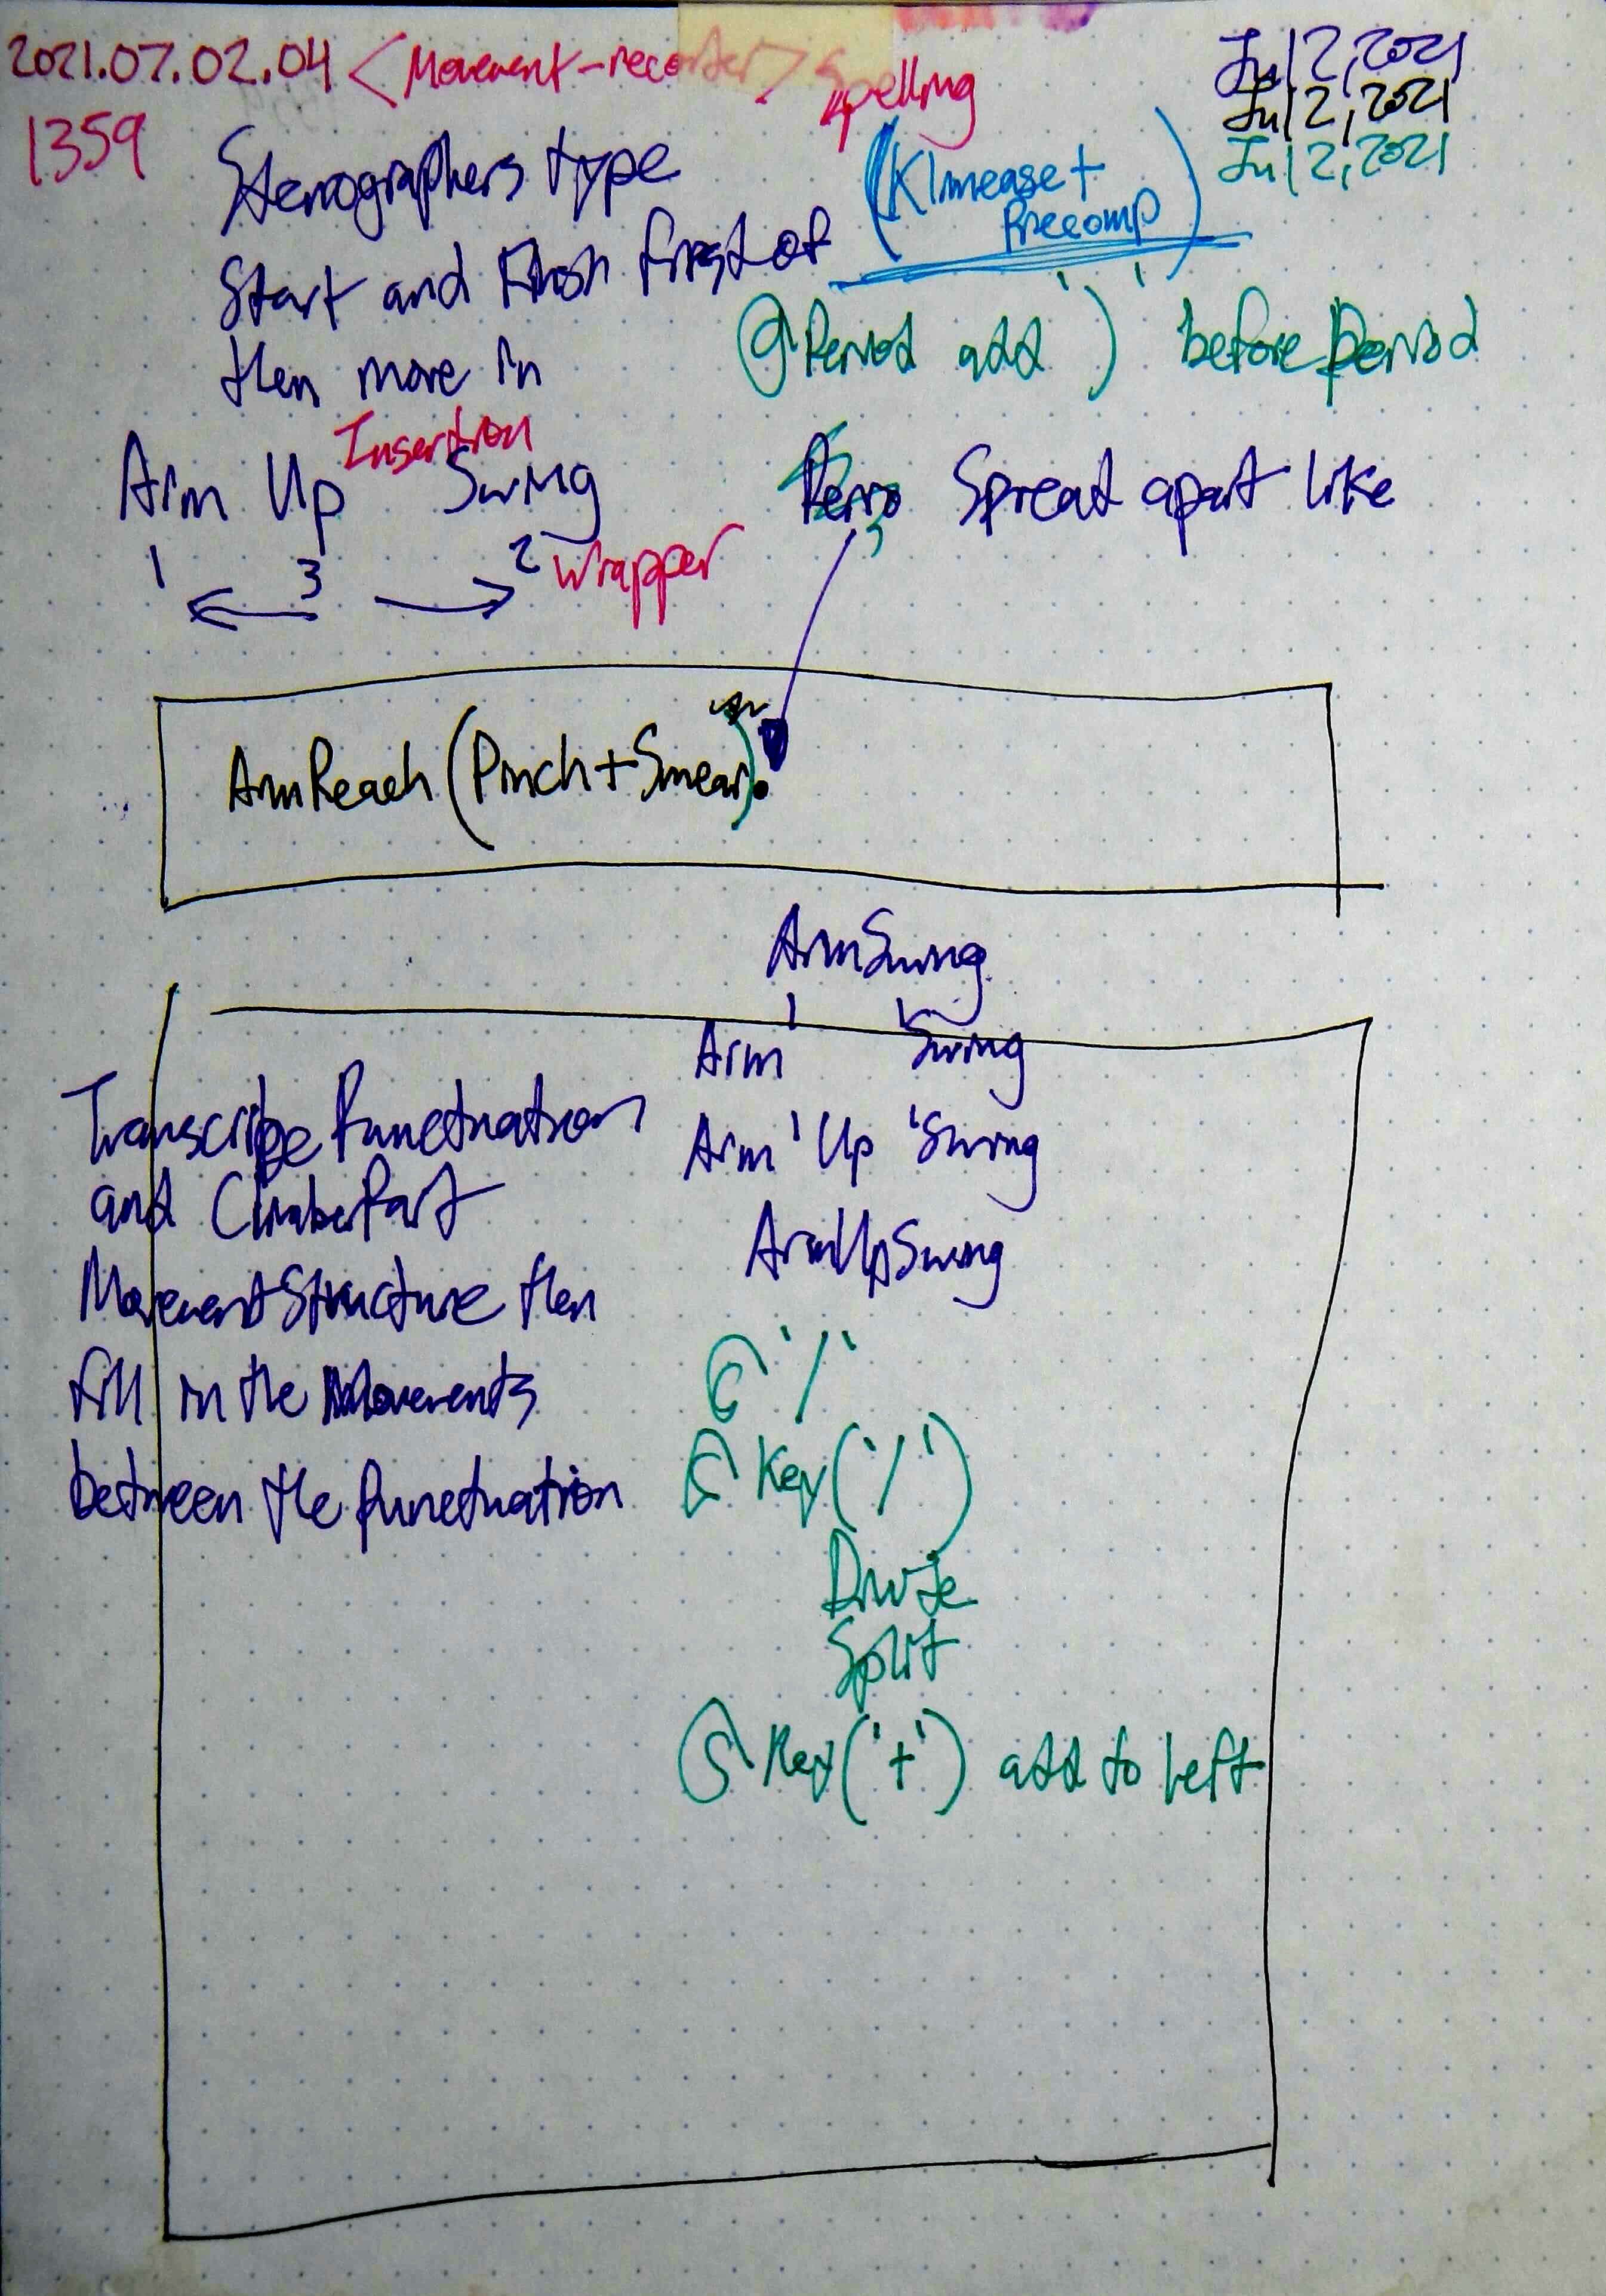 2021.07.02.04 <Movement-recorder> Spelling
1359
Jul 2, 2021
Jul 2, 2021
Jul 2, 2021
Stenographers type
Start and Finish first of
then more in
(Klmease+
Precomp)
@Period add ')' before period
Arm Up Insertion Swing
1 3 2 Wrapper
Spread apart like
ArmReach(Pinch+Smear).
ArmSwing
Arm ' 'Swing
Arm 'Up 'Swing
ArmUpSwing
Transcribe Punctuation
and ClimberPart
MovementStructure then
fill in the Movements
between the Punctuation
'/'
Key('/')
Divide
Split
Key('+') add to left